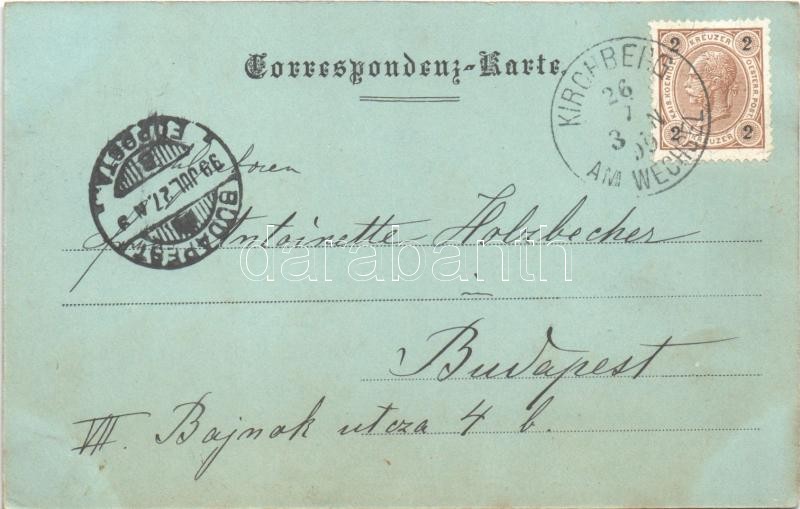 Correspondenz-Karte.
2 KREUZER 2
KAIS. KOENIGL. OESTERR. POST.
2 KREUZER 2
KIRCHBERG
26
7
3 N
99
AM WECHSEL
FŐPOSTA
99 JUL. 27. N 9
BUDAPEST
Antoinette Holzbecher
darabanth
in
Budapest
VII. Bajnok utcza 4 b.